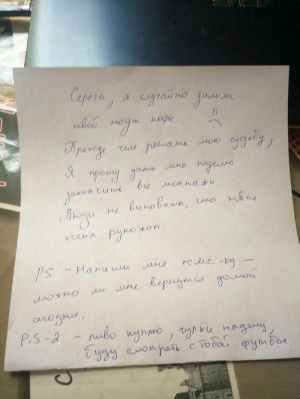 Серега, я случайно залила
твой ноут кофе.
Прежде чем решать мою судьбу,
Я прошу дать мне неделю
закончить все монтажи
Люди не виноваты, что твоя
жена рукожоп.
PS - Напиши мне "смс-ку" -
можно ли мне вернутся домой
сегодня.
P.S-2 - пиво куплю, чулки надену,
буду смотреть с тобой футбол